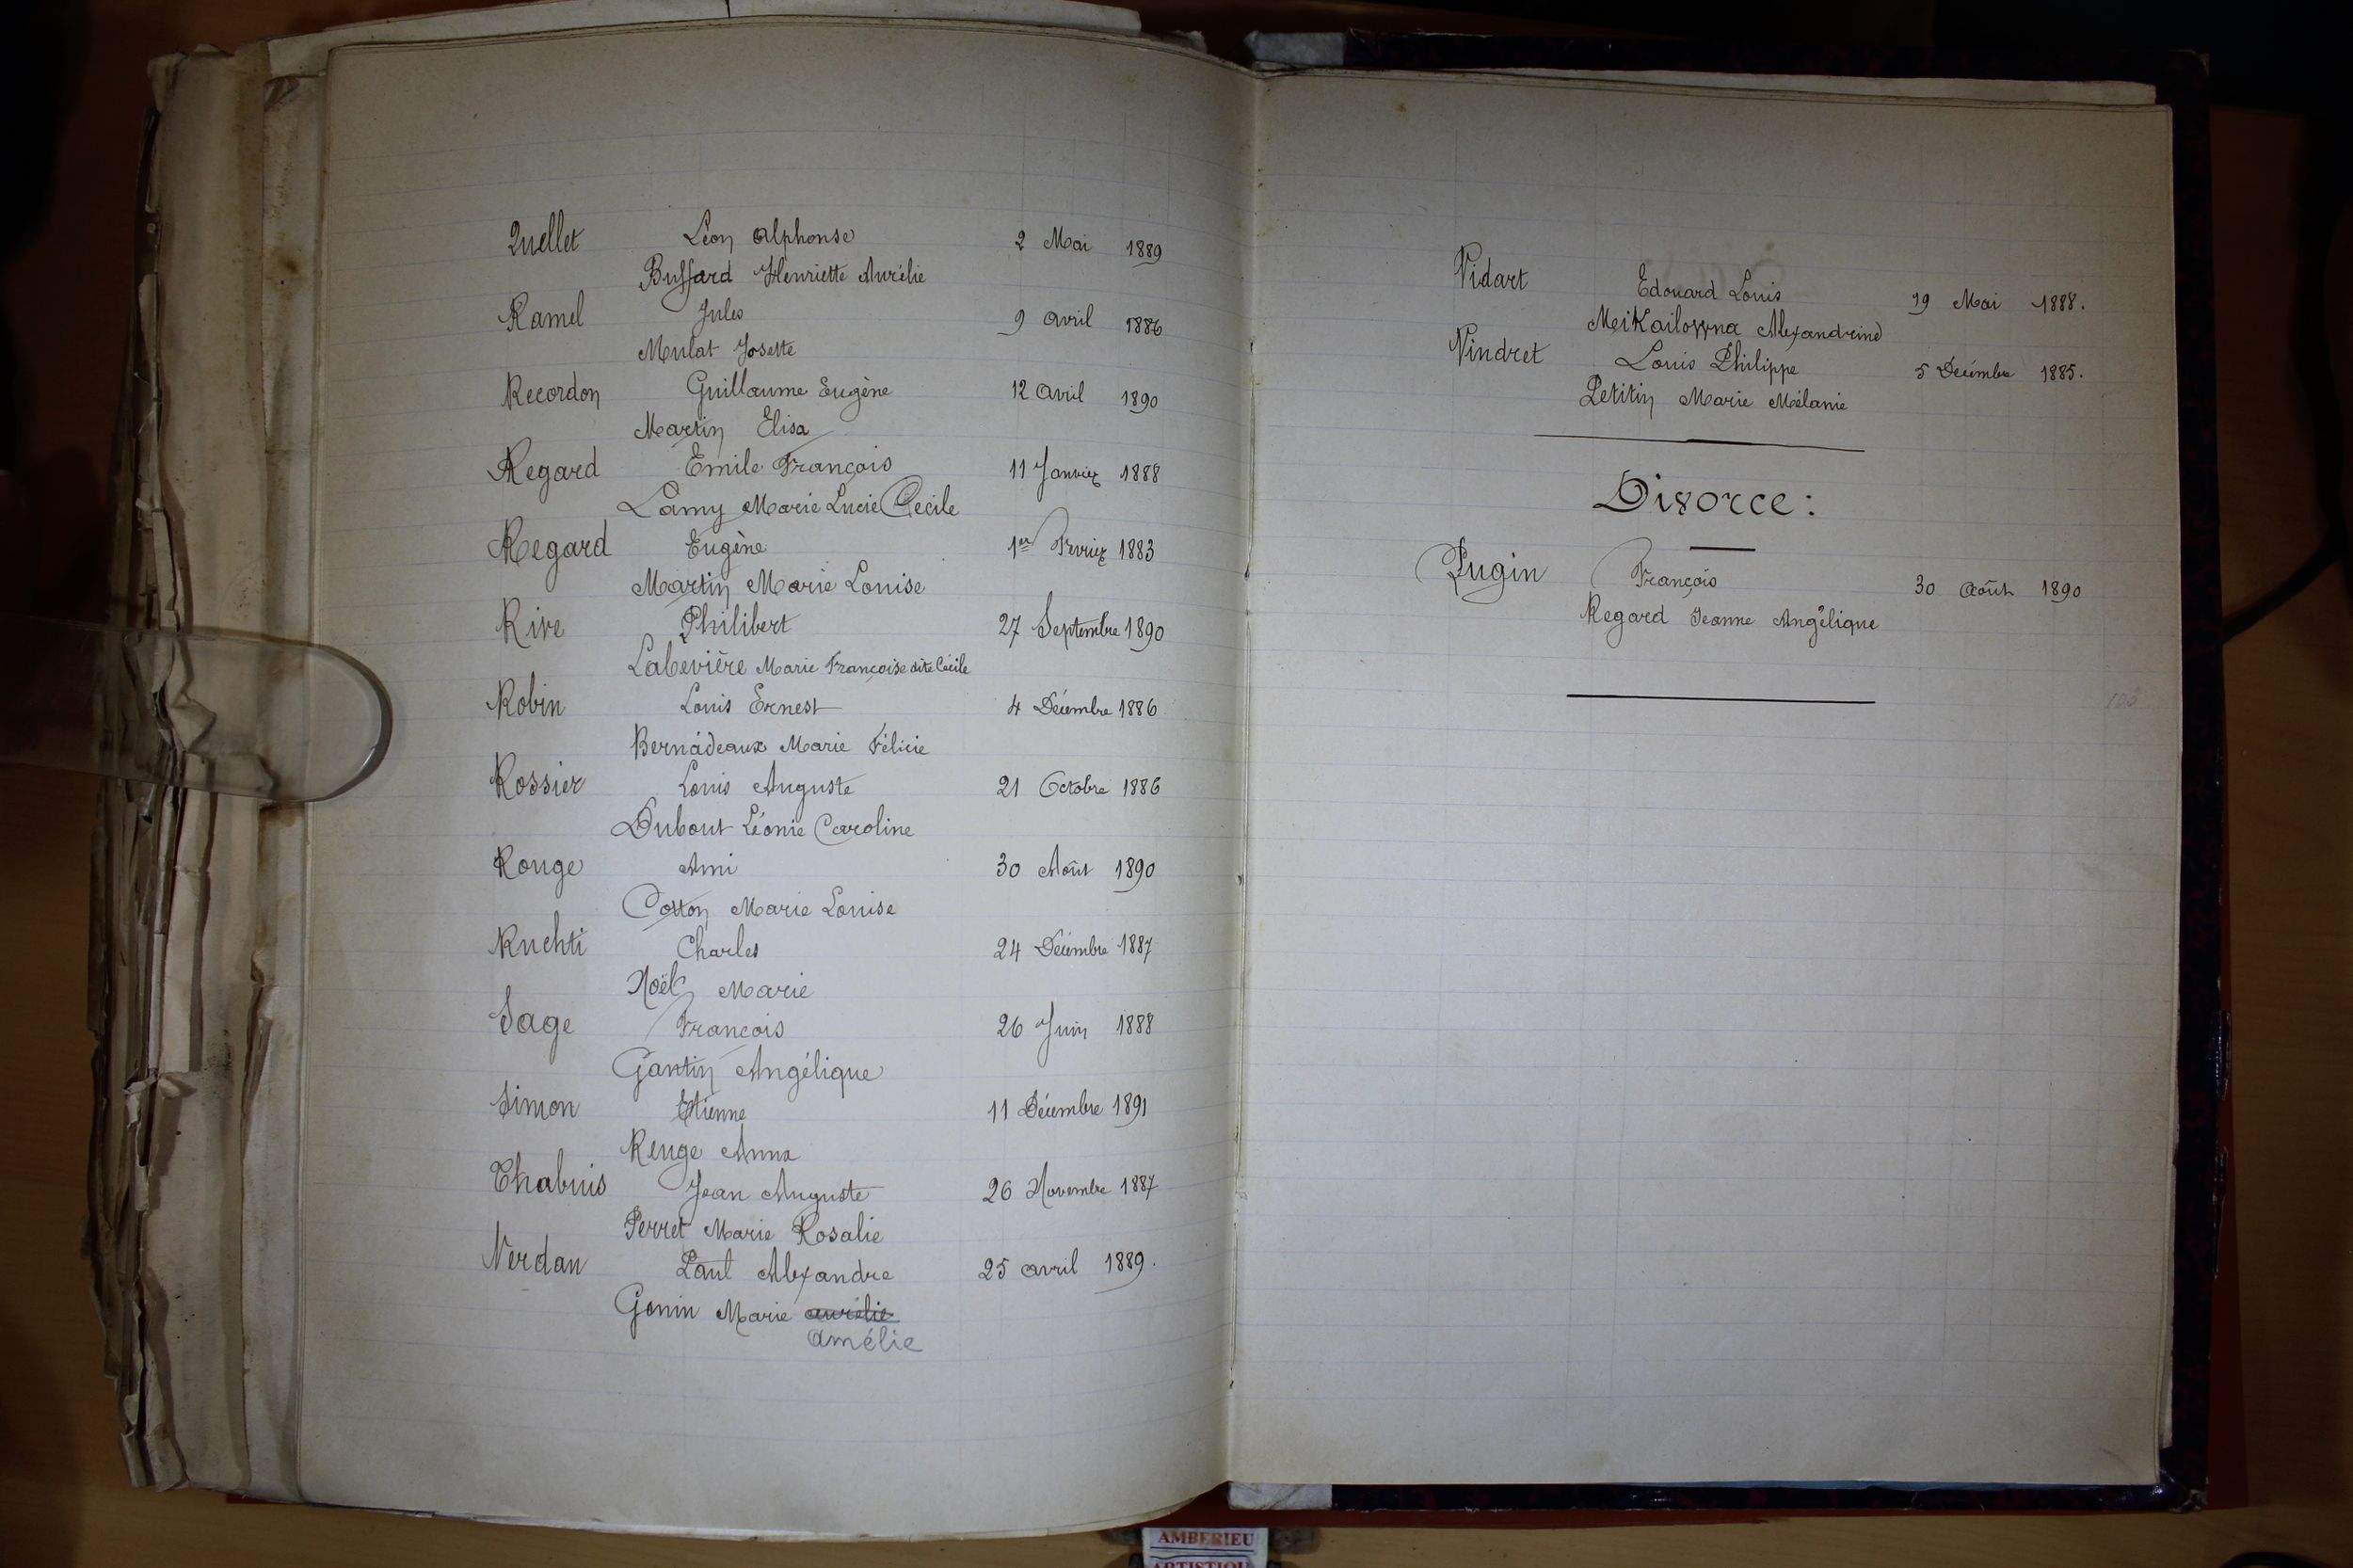 Quellet Léon Alphonse 2 Mai 1889
Buffard Henriette Aurélie
Ramel Jules 9 avril 1886
Mulat Josette
Recordon Guillaume Eugène 12 avril 1890
Martin Elisa
Regard Emile François 11 Janvier 1888
Lamy Marie Lucie Cécile
Regard Eugène 1er Fvrier 1883
Martin Marie Louise
Rive Philibert 27 Septembre 1890
Labevière Marie Françoise dite Cécile
Robin Louis Ernest 4 Décembre 1886
Bernadeaux Marie Félicie
Rossier Louis Auguste 21 Octobre 1886
Dubout Léonie Caroline
Rouge Ami 30 Août 1890
Marie Louise
Ruchti Charles 24 Décembre 1887
Noël Marie
Sage François 26 Juin 1888
Gantin Angélique
Simon Etienne 11 Décembre 1891
Renge Anna
Thabuis Jean Auguste 26 Novembre 1887
Perret Marie Rosalie
Verdan Paul Alexandre 25 avril 1889.
Gonin Marie aurélie
amélie
Vidart Edouard Louis 19 Mai 1888.
Meikailowna Alexandrine
Vindret Louis Philippe 5 Décembre 1885.
Petitin Marie Mélanie
Divorce :
Pugin François 30 Août 1890
Regard Jeanne Angélique
103
AMBERIEU